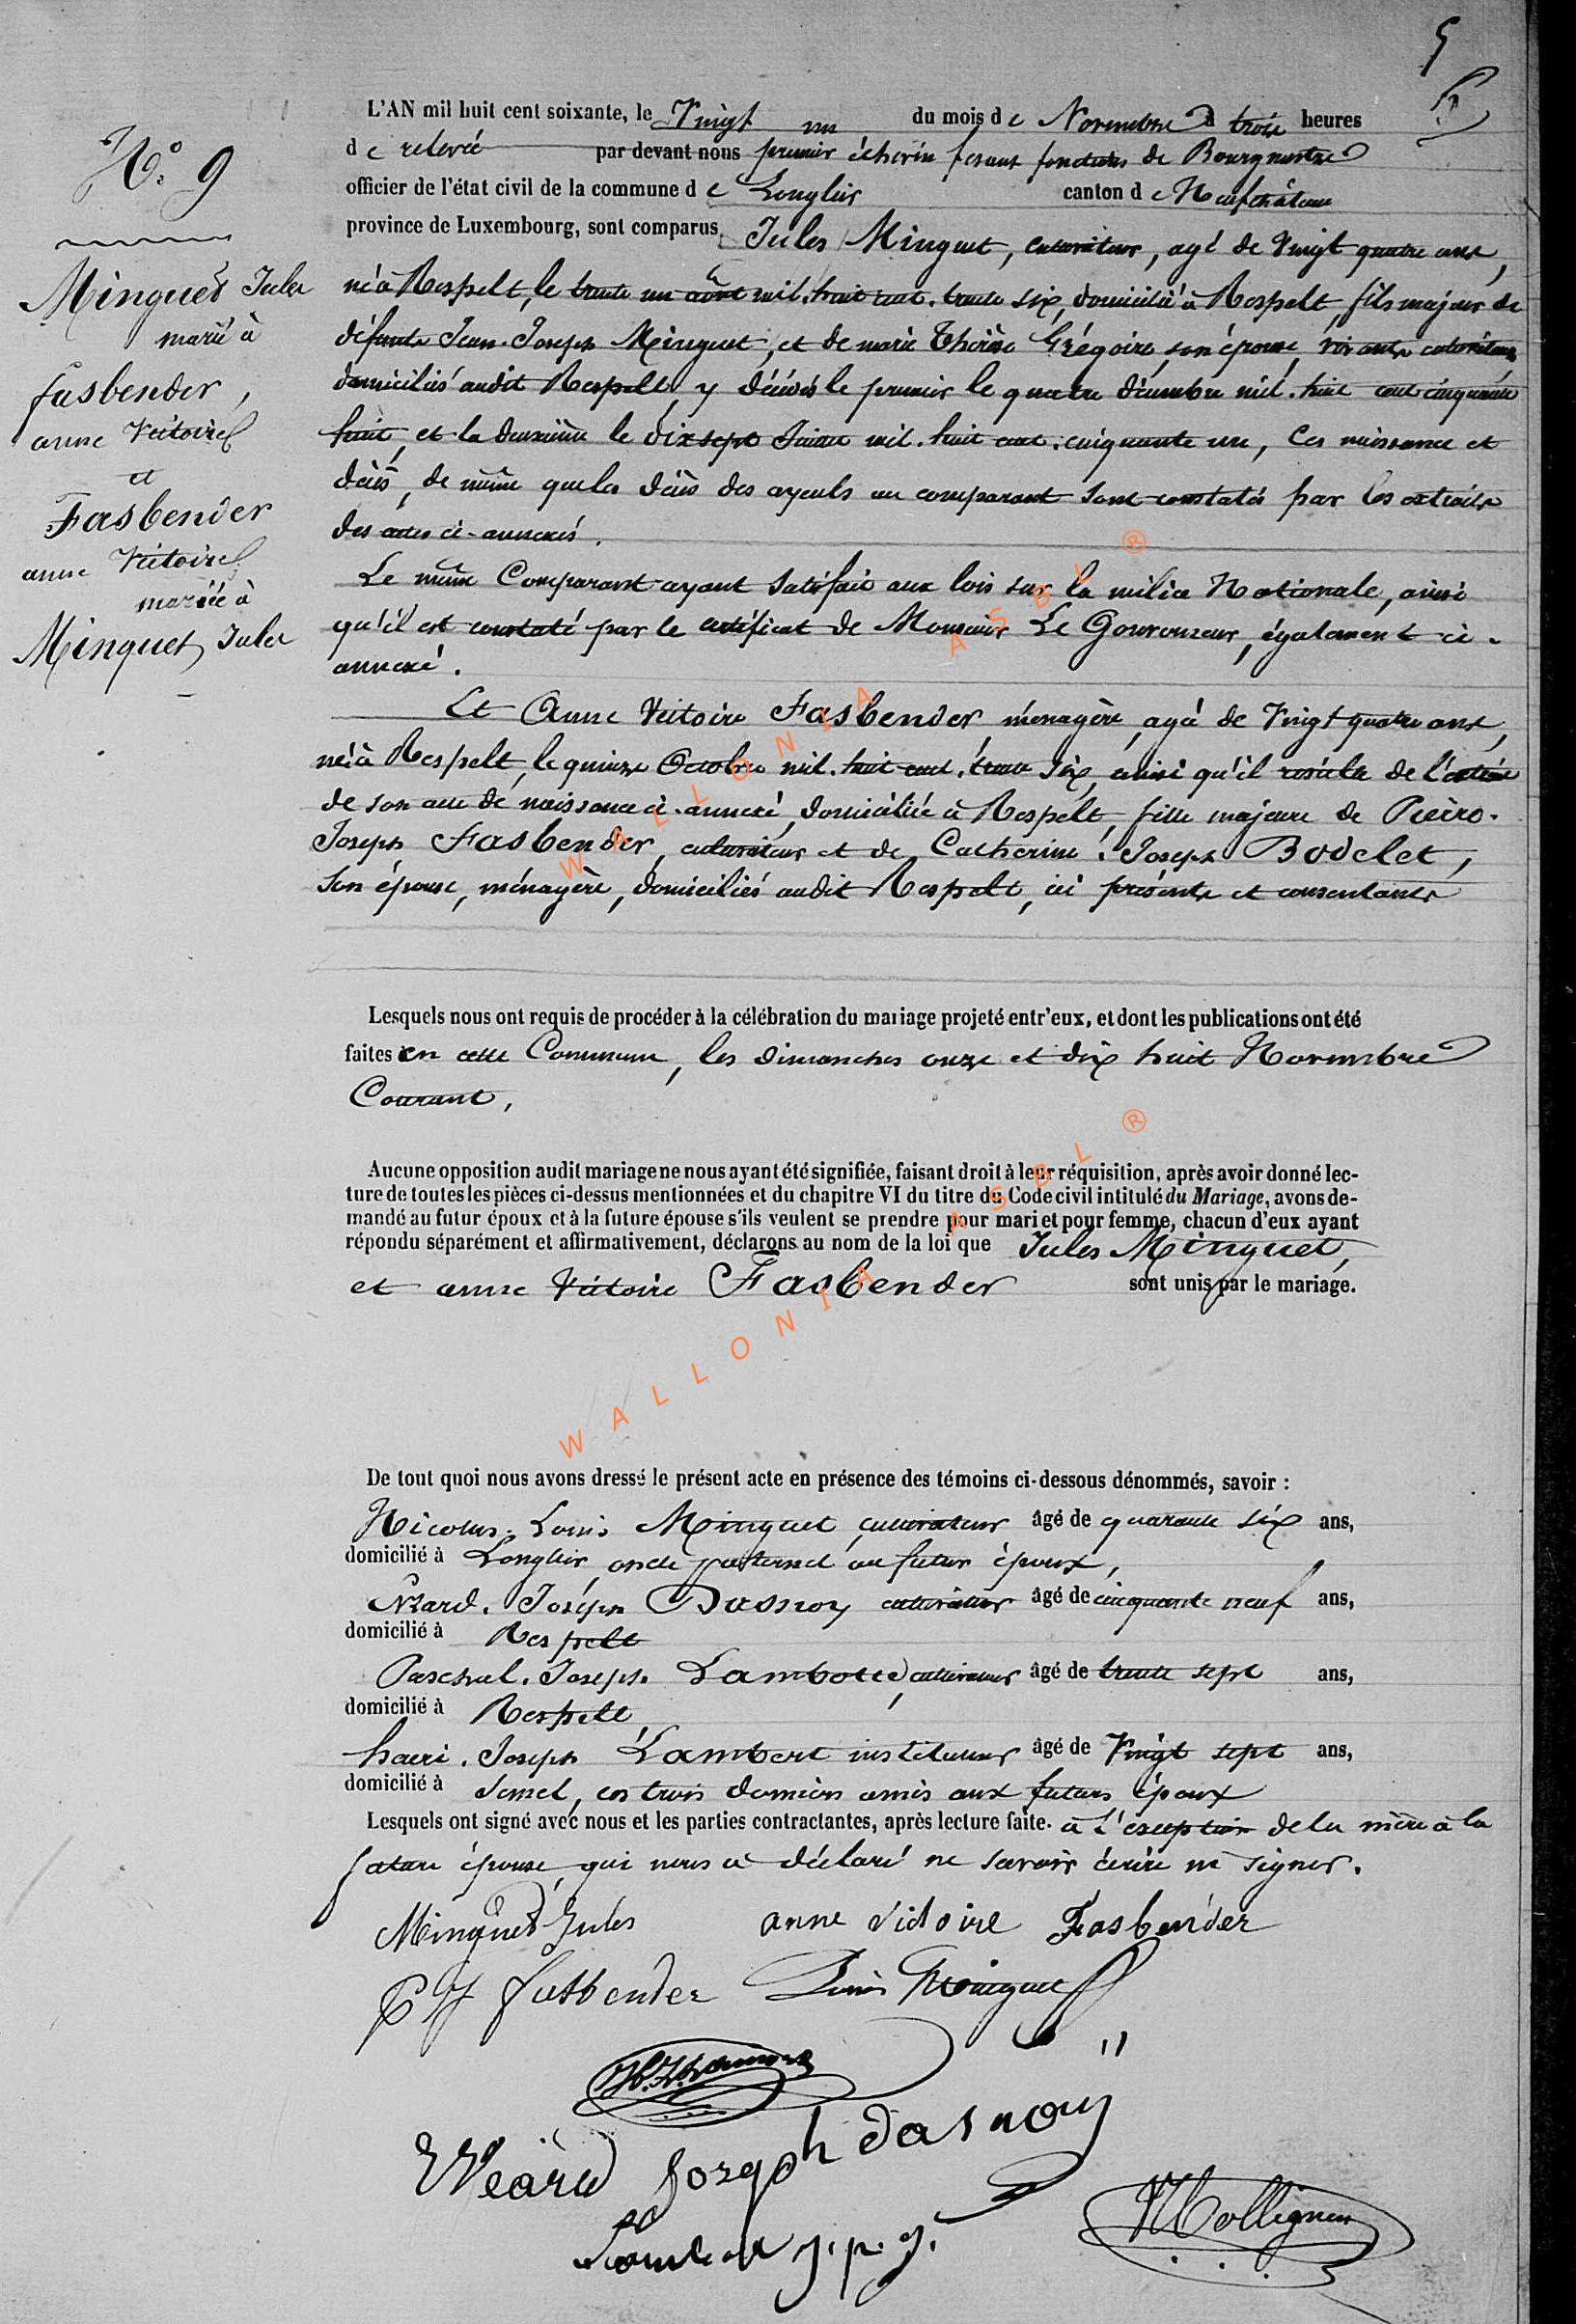 5
N.° 9
Minguet Jules
marié à
fasbender,
anne Victoire
et
Fasbender
anne Victoire
mariée à
Minguet Jules
L'AN mil huit cent soixante, le Vingt un du mois de Novembre à trois heures
de relevée par devant nous premier échevin fesant fonctions de Bourgmestre
officier de l'état civil de la commune de Longlier canton de Neufchâteau
province de Luxembourg, sont comparus Jules Minguet, cultivateur, agé de Vingt quatre ans,
né à Respelt, le trente un août mil-huit cent-trente six, domicilié à Respelt, fils majeur de
défunts Jean-Joseph Minguet, et de marie Thérèse Grégoire, son épouse, vivants cultivateurs
domiciliés audit Respelt, y décédés le premier le quatre décembre mil-huit cent cinquante
huit, et la deuxième le dix sept Janvier mil-huit cent-cinquante un, Ces naissance et
décès, de même que les décès des ayeuls au comparant sont constatés par les extraits
des actes ci-annexés.
Le même Comparant ayant satisfait aux lois sur la milice Nationale, ainsi
qu'il est constaté par le certificat de Monsieur Le Gouverneur, également ci-
annexé.
Et Anne Victoire Fasbender, ménagère, agée de Vingt quatre ans,
née à Respelt, le quinze Octobre mil-huit cent-trente six, ainsi qu'il résulte de l'extrait
de son acte de naissance ci-annexé, domiciliée à Respelt, fille majeure de Pierre-
Joseph Fasbender, cultivateur et de Catherine-Joseph Bodelet,
son épouse, ménagère, domiciliés audit Respelt, ici présents et consentants
Lesquels nous ont requis de procéder à la célébration du mariage projeté entr'eux, et dont les publications ont été
faites en cette Commune, les dimanches onze et dix huit Novembre
Courant,
Aucune opposition audit mariage ne nous ayant été signifiée, faisant droit à leur réquisition, après avoir donné lec-
ture de toutes les pièces ci-dessus mentionnées et du chapitre VI du titre du Code civil intitulé du Mariage, avons de-
mandé au futur époux et à la future épouse s'ils veulent se prendre pour mari et pour femme, chacun d'eux ayant
répondu séparément et affirmativement, déclarons au nom de la loi que Jules Minguet,
et anne Victoire Fasbender sont unis par le mariage.
De tout quoi nous avons dressé le présent acte en présence des témoins ci-dessous dénommés, savoir :
Nicolas-Louis Minguet, cultivateur âgé de quarante six ans,
domicilié à Longlier, oncle paternel au futur époux,
Joseph Dasnoy cultivateur âgé de cinquante neuf ans,
domicilié à Respelt
Paschal-Joseph Lambotte, cultivateur âgé de trente sept ans,
domicilié à Respelt
henri-Joseph Lambert instituteur âgé de Vingt sept ans,
domicilié à Semel, ces trois derniers amis aux futurs époux
Lesquels ont signé avec nous et les parties contractantes, après lecture faite. à l'exception de la mère à la
future épouse, qui nous a déclaré ne savoir écrire ni signer.
Minguet Jules anne victoire Fasbender
P J fasbender Louis Minguet
joseph dasnoy
Collignon
WALLONIA ASBL ®
WALLONIA ASBL ®